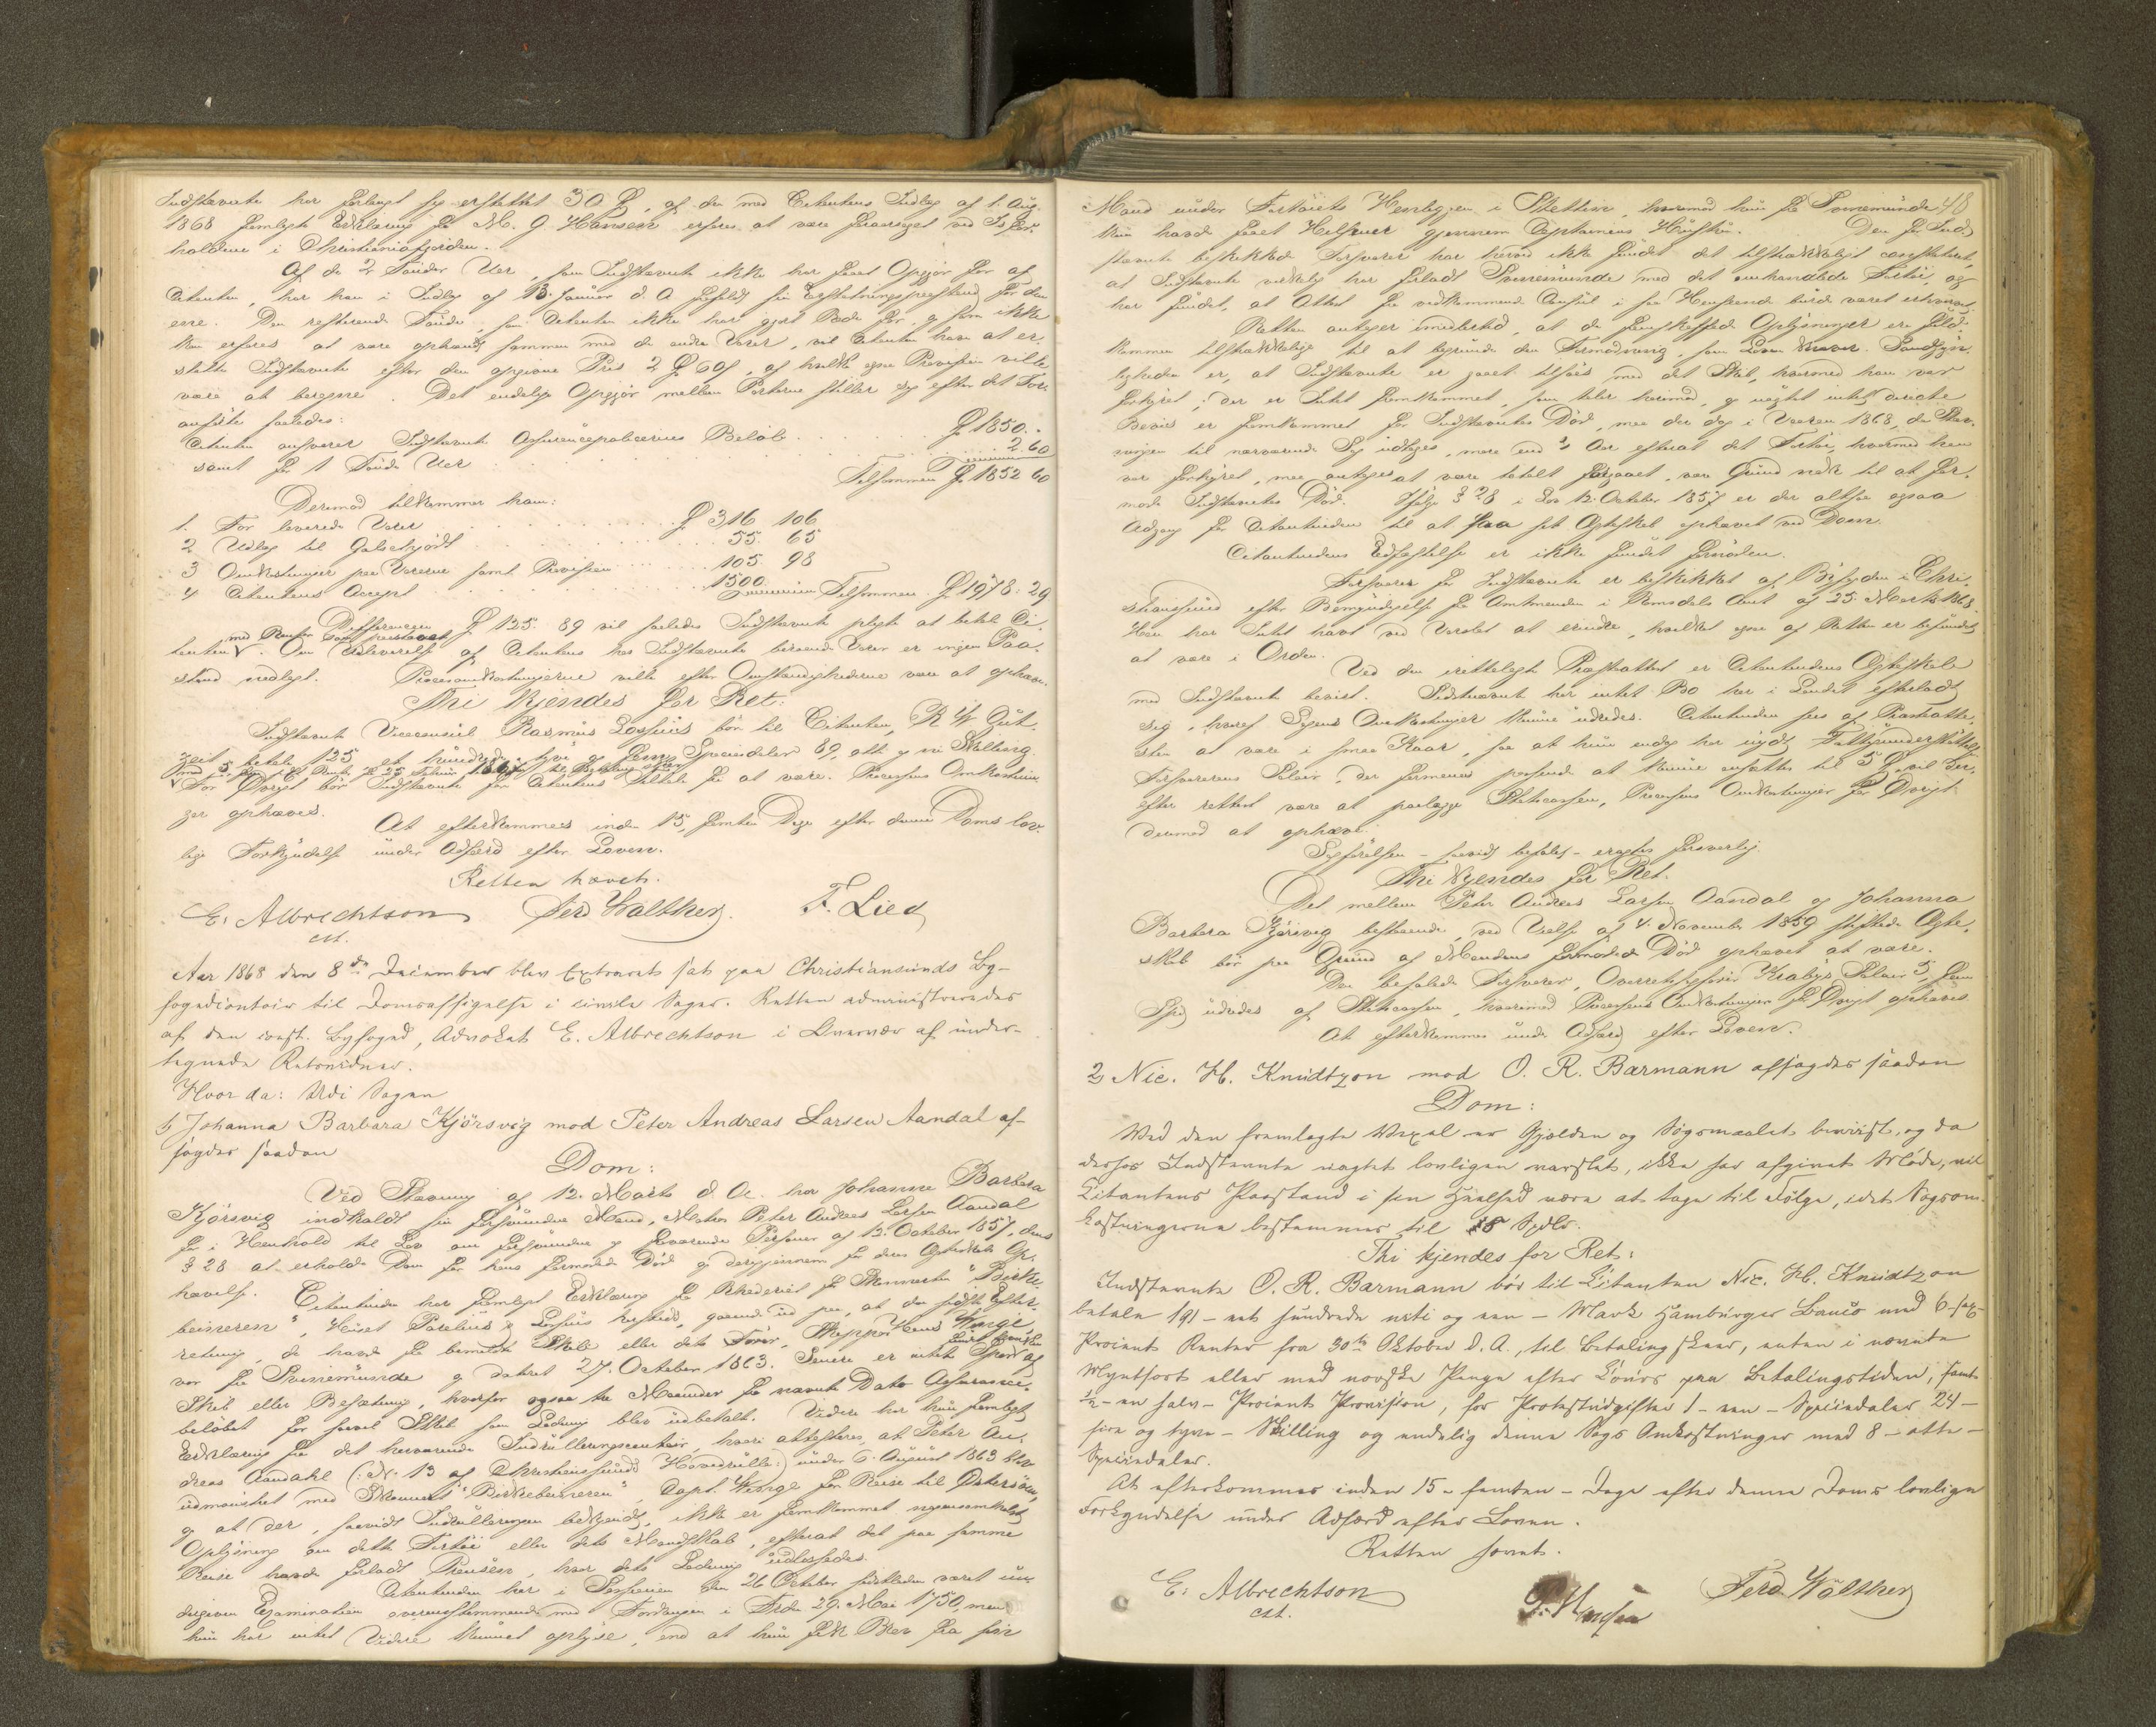 Indstævnte har forlangt sig erstattet 30 , af den med Citantens Indlæg af 1. Aug.
1868 fremlagte Erklæring fra M. G. Hansen erfares at være foraarsaget ved
holdene i Christianiafjorden.
Af de 2 Tønder Uer, som Indstævnte ikke har faaet Opgjør for af
Citanten, har han i Indlæg af 13. Januar d. A frafaldt sin Erstatningspaastand for den
ene. Den resterende Tønde, som Citanten ikke har gjort Rede for, og som ikke
kan erfares at være ophandlet sammen med de andre Varer, vil Citanten have at er-
statte Indstævnte efter den opgivne Pris 2 60, af hvilke ogsaa Provision vilde
være at beregne. Det endelige Opgjør mellem Parterne stiller sig efter det Foran-
anførte saaledes:
Citanten ansvarer Indstævnte Assurancepolicernes Beløb 1850. -
samt for 1 Tønde Uer 2. 60
Tilsammen 1852 60
Derimod tilkommer ham:
1. For leverede Varer 316 106
2 Udlæg til 55. 65
3 Omkostninger paa Varerne samt Provision 105. 98
4 Citantens Accept 1500.
Tilsammen 1978: 29
Differencen 125. 89 vil saaledes Indstævnte pligte at betale Ci-
med Renter som paastaaet
tanten. Om Udleverelse af Citantens hos Indstævnte beroende Varer er ingen Paa-
stand nedlagt. Procesomkostningerne vilde efter Omstændighederne være at ophæve.
Thi kjendes for Ret:
Indstævnte Viceconsul Rasmus Lossius bør til Citanten, R W
betale 125 et hundrede tyve og fem Speciedaler 89, otti og ni Skilling
med 5, fem pCt. Rente fra
For Øvrigt bør Indstævnte for Citantens Tiltale fri at være. Processens Omkostnin-
ger ophæves.
At efterkommes inden 15, femten Dage efter denne Doms lov-
lige Forkyndelse under Adfærd efter Loven.
Retten hævet.
E. Albrechtson Ferd Walther. F. Lied
cst.
Aar 1868 den 8de December blev Extraret sat paa Christiansunds By-
fogedcontoir til Domsafsigelse i civile Sager. Retten administreredes
af den const. Byfoged, Advokat E. Albrechtson i Overvær af under-
tegnede Retsvidner.
Hvor da: Udi Sagen
1, Johanna Barbara Kjörsvig mod Peter Andreas Larsen Aandal af-
sagdes saadan
Dom:
Ved Stævning af 12. Marts d. A. har Johanne Barbara
Kjörsvig indkaldt sin forsvundne Mand, Matros Peter Andreas Larsen Aandal
for i Henhold til Lov om forsvundne og fraværende Personer af 12. October 1857, dens
§ 28 at erholde Dom for hans formodede Død og derigjennem for deres Ægteskabs Op-
hævelse. Citantinden har fremlagt Erklæring fra Rhederiet for Skonnerten "Birke-
beineren", Huset Parelius & Lossius herstede, gaaende ud paa, at den sidste Efter-
retning, de havde fra bemeldte Skib eller dets Fører, Skipper Hans Winge
var fra Svinemünde og dateret 27. October 1863. Senere er intet Spor af
Skib eller Besætning, hvorfor ogsaa tre Maaneder fra nævnte Dato Assurance-
beløbet for saavel Skib som Ladning blev udbetalt. Videre har hun fremlagt
Erklæring fra det herværende Indrulleringscontoir, hvori attesteres, at Peter An-
dreas Aandahl (: No. 13 af Christianssunds Hovedrulle:) under 6. August 1863 blev
udmønstret med Skonnert "Birkebeineren", Capt. Winge for Reise til Østersøen,
og at der, saavidt Indrulleringen bekjendt, ikke er fremkommet nogensomhelst
Oplysning om dette Fartøi eller dets Mandskab, efterat det paa samme
Reise havde forladt Preussen, hvor dets Ladning udlossedes.
Citantinden har i Sessionen den 26 October sidstleden været un-
dergiven Examination overensstemmende med Forordningen i Frdn 29. Mai 1750, men
hun har intet Videre kunnet oplyse, end at hun fik Brev fra sin
48
Mand under Fartøiets Henliggen i Stettin, hvorimod hun fra Svinemünde
kun havde faaet Hilsener gjennem Captainens Hustru. Den for Ind-
stævnte beskikkede Forsvarer har herved ikke fundet det tilstrækkeligt constateret,
at Indstævnte virkelig har forladt Svinemünde med det omhandlede Fartøi, og
har fundet, at Attest fra vedkommende Consul i saa Henseende burde været erhvervet.
Retten antager imidlertid, at de fremskaffede Oplysninger ere fuld-
kommen tilstrækkelige til at begrunde den Formodning, som Loven kræver. Sandsyn-
ligheden er, at Indstævnte er gaaet tilsøes med det Skib, hvormed han var
forhyret; der er Intet fremkommet, som taler herimod, og uagtet intet directe
Bevis er fremkommet for Indstævntes Død, maa der dog i Vaaren 1868, da Stæv-
ningen til nærværende Sag udtoges, mere end Aar efterat det Fartøi, hvormed han
var forhyret, maa antages at være totalt forgaaet, være Grund nok til at for-
mode Indstævntes Død. Ifølge § 28 i Lov 12. October 1857 er der altsaa ogsaa
Adgang for Citantinden til at faa sit Ægteskab ophævet ved Dom.
Citantindens Edfæstelse er ikke fundet fornøden.
Forsvarer for Indstævnte er beskikket af Byfogden i Chri-
stianssund efter Bemyndigelse fra Amtmanden i Romsdals Amt af 25. Marts 1868.
Han har Intet havt ved Varslet at erindre, hvilket ogsaa af Retten er befundet
at være i Orden.
Ved den irettelagte Præsteattest er Citantindens Ægteskab
med Indstævnte bevist. Indstævnte har intet Bo her i Landet efterladt
sig, hvoraf Sagens Omkostninger kunne udredes. Citantinden sees af Præsteatte-
sten at være i smaa Kaar, saa at hun endog har nydt Fattigunderstøttelse.
Forsvarerens Salair, der formenes passende at kunne ansættes til 5 , vil der-
efter rettest være at paalægge Statscassen, Processens Omkostninger for Øvrigt
derimod at ophæve.
Sagførelsen – saavidt befalet – eragtes forsvarlig.
Thi kjendes for Ret.
Det mellem Peter Andreas Larsen Aandal og Johanna
Barbara Kjörsvig bestaaende, ved Vielse af 4. November 1859 stiftede Ægte-
skab bør paa Grund af Mandens formodede Død ophævet at være.
Den befalede Forsvarer, Overretssagfører Krabys Salair 5, fem
Spd, udredes af Statscassen, hvorimod Processens Omkostninger for Øvrigt ophæves.
At efterkommes under Adfærd efter Loven.
2, Nic. H. Knudtzon mod O. R. Barmann afsagdes saadan
Dom:
Ved den fremlagte Vexel er Gjælden og Søgsmaalet beviist, og da
derhos Indstævnte uagtet lovligen varslet, ikke har afgivet Møde, vil
Citantens Paastand i sin Heelhed være at tage til Følge, idet Sagsom-
kostningerne bestemmes til 8 Spdlr.
Thi kjendes for Ret:
Indstævnte O. R. Barmann bør til Citanten Nic. H. Knudtzon
betale 191 – eet hundrede niti og een – Mark Hamburger Banco med 6 – sex
Procents Renter fra 30te Oktober d. A., til Betaling skeer, enten i nævnte
Myntsort eller med norske Penge efter Cours paa Betalingstiden, samt
½ – en halv – Procents Provision, for Protestudgifter 1 – een – Speciedaler 24 –
fire og tyve – Skilling og endelig denne Sags Omkostninger med 8 – otte –
Speciedaler.
At efterkommes inden 15 – femten – Dage efter denne Doms lovlige
Forkyndelse under Adfærd efter Loven.
Retten hævet.
E. Albrechtson Ferd. Walther
cst.